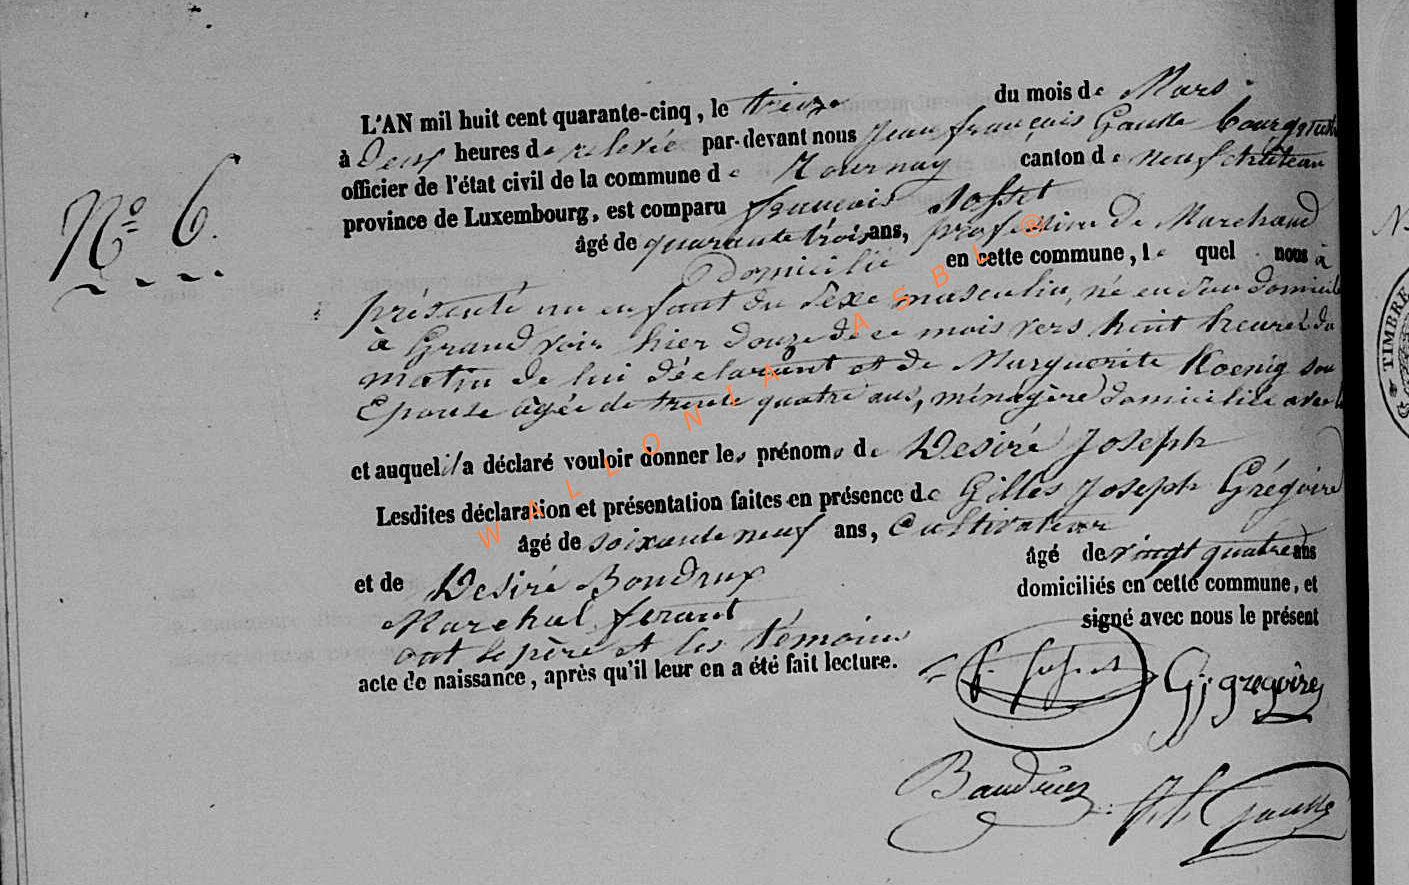 N° 6.
L'AN mil huit cent quarante-cinq, le treize du mois de Mars
à deux heures de relevée par-devant nous Jean françois Gaussse bourgmestre
officier de l'état civil de la commune de Tournay canton de neufchateau
province de Luxembourg, est comparu françois Josset
âgé de quarante trois ans, profession de Marchand
Domicilié en cette commune, lequel nous à
présenté un enfant du sexe masculin, né en son domicile
à Grandvoir hier douze de ce mois vers huit heures du
matin de lui déclarant et de Marguerite Koenig son
Epouse âgée de trente quatre ans, ménagère domiciliée avec
et auquel il a déclaré vouloir donner les prénoms de Desiré Joseph
Lesdites déclaration et présentation faites en présence de Gilles Joseph Grégoire
âgé de soixante neuf ans, Cultivateur
et de Desiré Boudrux âgé de vingt quatre ans
Marchal ferant domiciliés en cette commune, et
ont le père et les témoins signé avec nous le présent
acte de naissance, après qu'il leur en a été fait lecture.
G: j: gregoire
WALLONIA ASBL @
TIMBRE